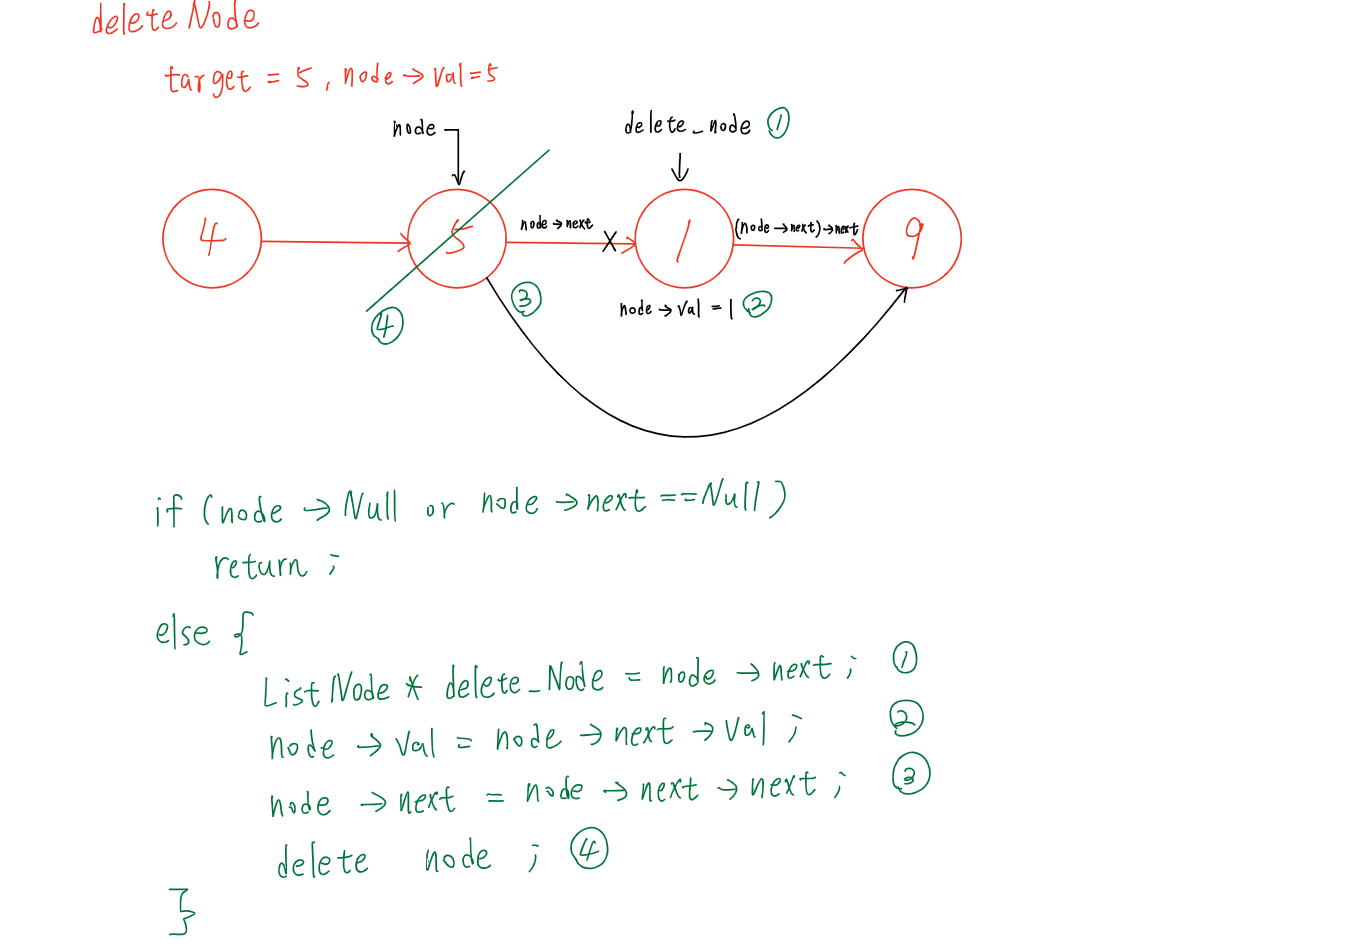 delete Node
target = 5 , node → val = 5
node
delete_node ①
4
5
node → next
X
1
(node → next) → next
9
④
③
node → val = 1 ②
if (node → Null or node → next == Null )
return ;
else {
List Node * delete_Node = node → next ; ①
node → val = node → next → val ; ②
node → next = node → next → next ; ③
delete node ; ④
}